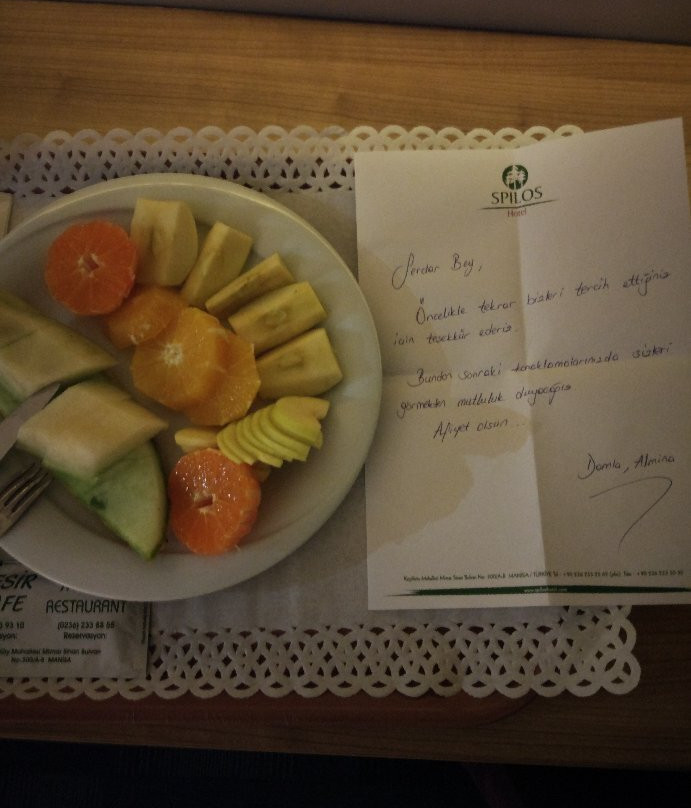 SPILOS
Hotel
Serdar Bey,
Öncelikle tekrar bizleri tercih ettiğiniz
için teşekkür ederiz.
Bundan sonraki konaklamalarınızda sizleri
görmekten mutluluk duyacağız
Afiyet olsun...
Damla, Almina
MANİSA / TÜRKİYE
ESİR
AFE
RESTAURANT
93 10
(0236) 233
Rezervasyon:
Mimar Sinan Bulvarı
No:300/A-B MANİSA